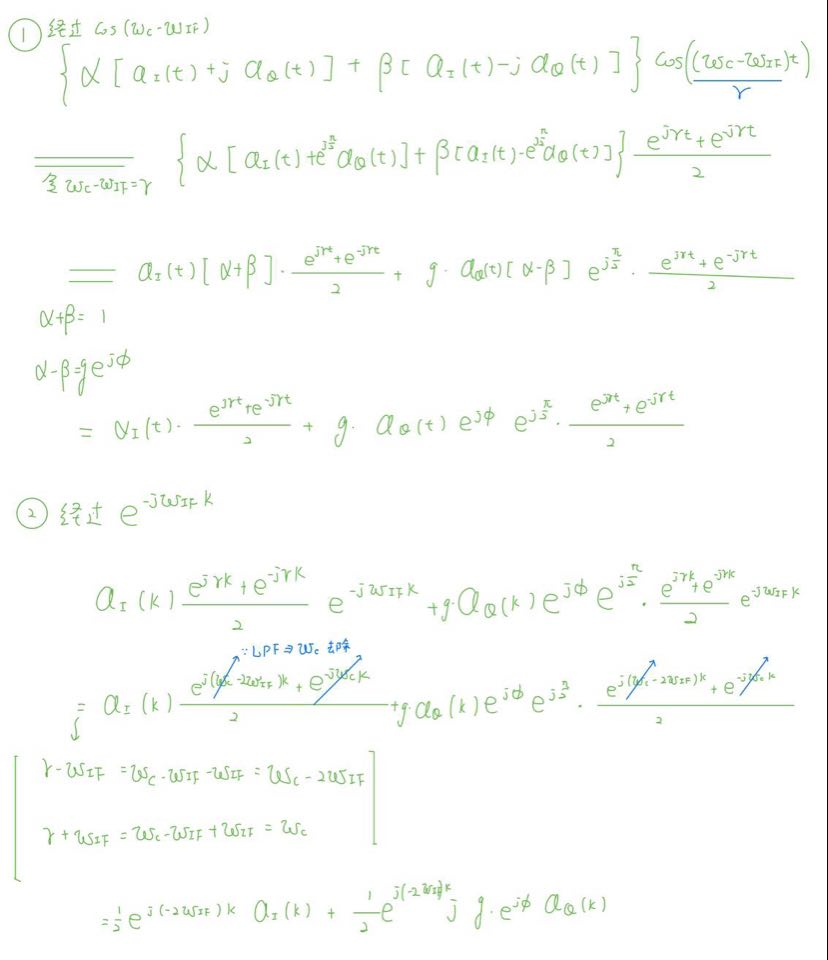 ① 经过 cos(ωc-ωIF)
{ α [ aI(t) + j aQ(t) ] + β [ aI(t) - j aQ(t) ] } cos((ωc-ωIF)t)
γ
令 ωc-ωIF=γ { α [ aI(t) + e^{jπ/2} aQ(t) ] + β [ aI(t) - e^{jπ/2} aQ(t) ] } (e^{jγt} + e^{-jγt})/2
= aI(t) [ α+β ] · (e^{jγt} + e^{-jγt})/2 + g · aQ(t) [ α-β ] e^{jπ/2} · (e^{jγt} + e^{-jγt})/2
α+β = 1
α-β = g e^{jϕ}
= αI(t) · (e^{jγt} + e^{-jγt})/2 + g · aQ(t) e^{jϕ} e^{jπ/2} · (e^{jγt} + e^{-jγt})/2
② 经过 e^{-jωIF k}
aI(k) (e^{jγk} + e^{-jγk})/2 e^{-jωIF k} + g · aQ(k) e^{jϕ} e^{jπ/2} · (e^{jγk} + e^{-jγk})/2 e^{-jωIF k}
∵ LPF ⇒ ωc 去除
= aI(k) (e^{j(ωc-2ωIF)k} + e^{-jωc k})/2 + g · aQ(k) e^{jϕ} e^{jπ/2} · (e^{j(ωc-2ωIF)k} + e^{-jωc k})/2
γ-ωIF = ωc-ωIF-ωIF = ωc-2ωIF
γ+ωIF = ωc-ωIF+ωIF = ωc
= 1/2 e^{j(-2ωIF)k} aI(k) + 1/2 e^{j(-2ωIF)k} j g · e^{jϕ} aQ(k)